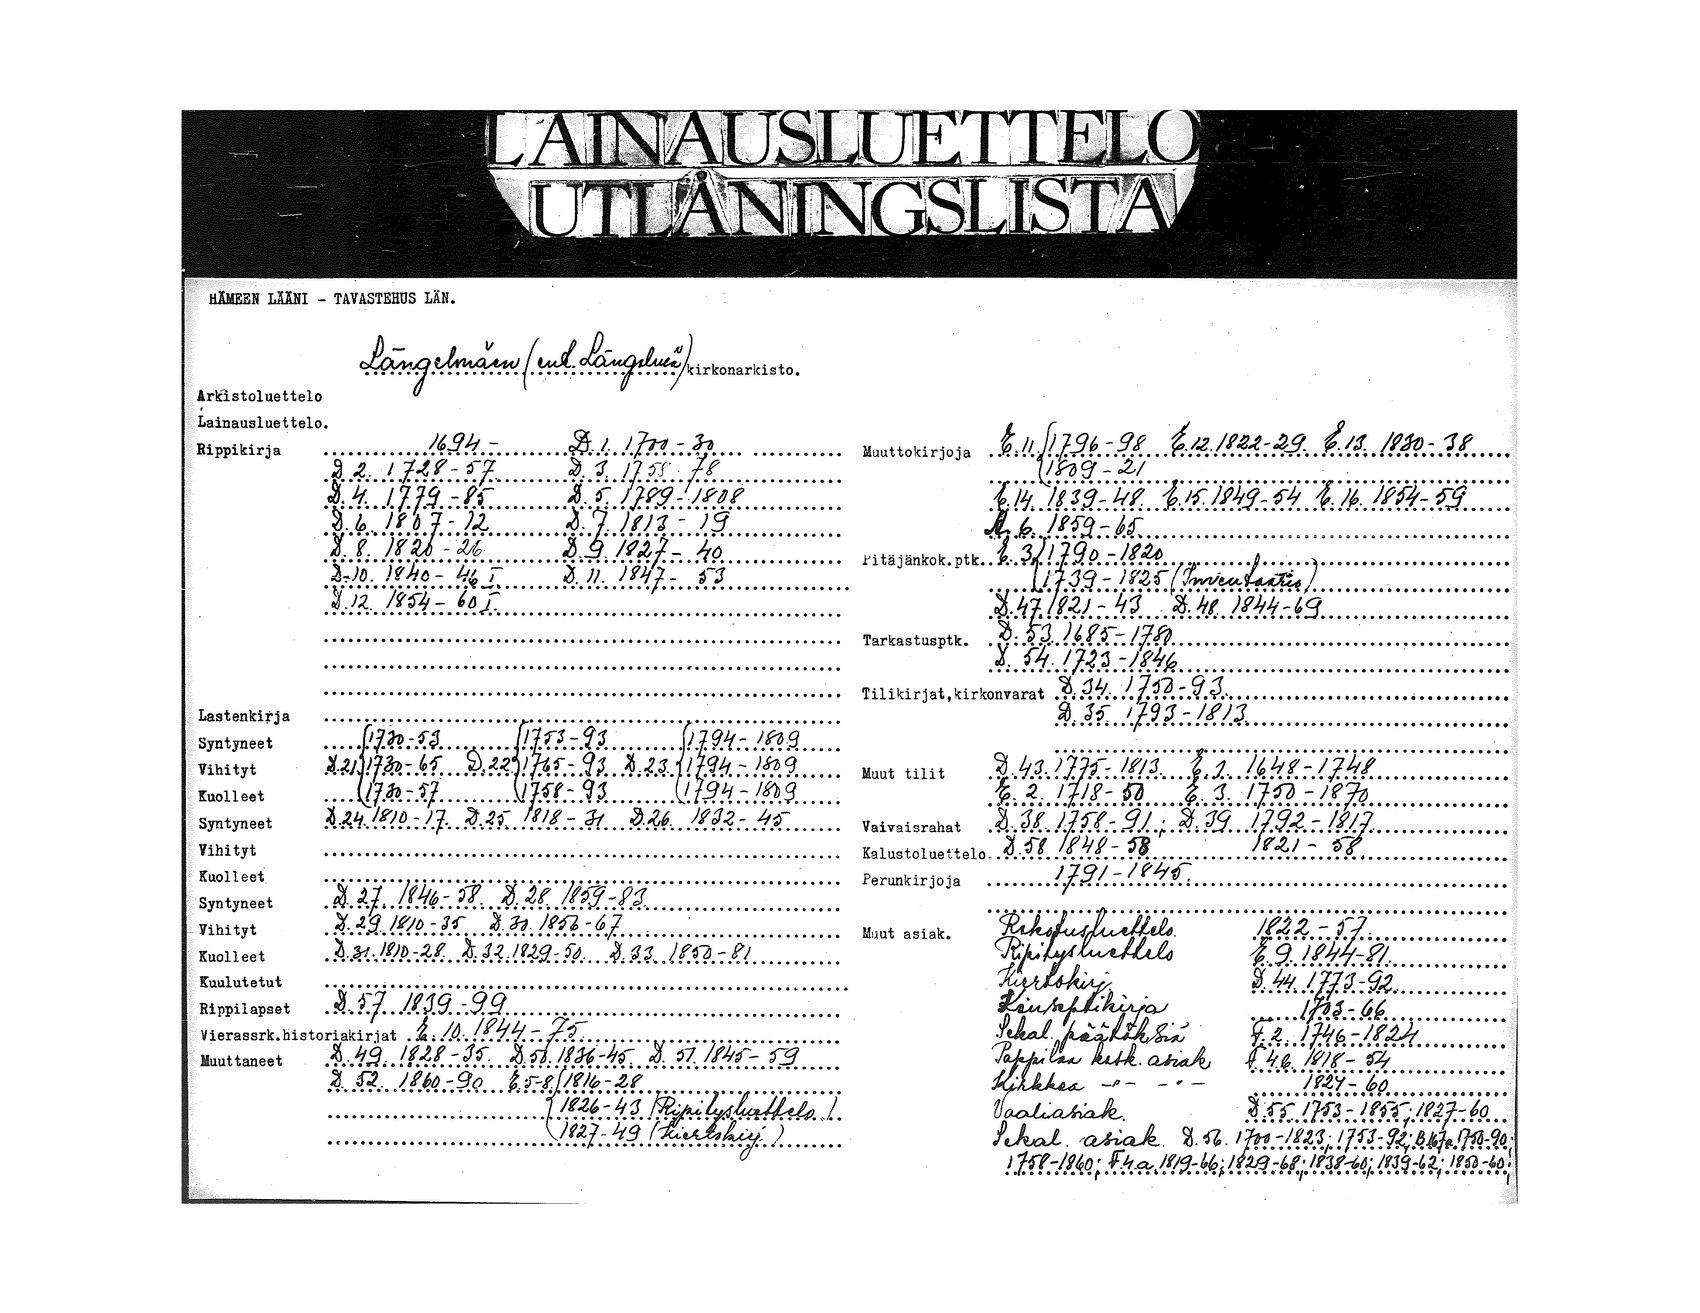 LAINAUSLUETTELO
UTLÅNINGSLISTA
HÄMEEN LÄÄNI - TAVASTEHUS LÄN.
Längelmäen (ent. Längelmä) kirkonarkisto.
Arkistoluettelo
Lainausluettelo.
Rippikirja 1694 - D. 1. 1700 - 30
D. 2. 1728 - 57 D. 3. 1758 - 78
D. 4. 1779 - 85 D. 5. 1789 - 1808
D. 6. 1807 - 12 D. 7. 1813 - 19
D. 8. 1820 - 26 D. 9. 1827 - 40
D. 10. 1840 - 46 I D. 11. 1847 - 53
D. 12. 1854 - 60 I.
Lastenkirja
Syntyneet 1730 - 53 1753 - 93 1794 - 1809
Vihityt D. 21 1730 - 65 D. 22 1765 - 93 D. 23 1794 - 1809
Kuolleet 1730 - 57 1758 - 93 1794 - 1809
Syntyneet D. 24. 1810 - 17 D. 25 1818 - 31 D. 26. 1832 - 45
Vihityt
Kuolleet
Syntyneet D. 27. 1846 - 58 D. 28. 1859 - 83
Vihityt D. 29. 1810 - 35 D. 30. 1856 - 67
Kuolleet D. 31. 1810 - 28 D. 32. 1829 - 50 D. 33. 1850 - 81
Kuulutetut
Rippilapset D. 57. 1839 - 99
Vierassrk.historiakirjat E. 10. 1844 - 75
Muuttaneet D. 49. 1828 - 35 D. 50. 1836 - 45 D. 51. 1845 - 59
D. 52. 1860 - 90 E. 5-8 1816 - 28
1826 - 43 (Ripitysluettelo)
1827 - 49 (Kiertokirj.)
Muuttokirjoja E. 11. 1796 - 98 E. 12. 1822 - 29 E. 13. 1830 - 38
1809 - 21
E. 14. 1839 - 48 E. 15. 1849 - 54 E. 16. 1854 - 59
6. 1859 - 65
Pitäjänkok.ptk. E. 3. 1790 - 1820
1739 - 1825 (Inventaario)
D. 47. 1821 - 43 D. 48. 1844 - 69
Tarkastusptk. D. 53. 1685 - 1780
D. 54. 1723 - 1846
Tilikirjat,kirkonvarat D. 34. 1750 - 93
D. 35. 1793 - 1813
Muut tilit D. 43. 1775 - 1813 E. 1. 1648 - 1748
E. 2. 1718 - 50 E. 3. 1750 - 1870
Vaivaisrahat D. 38. 1758 - 91; D. 39 1792 - 1817
Kalustoluettelo D. 58 1848 - 58 1821 - 58
Perunkirjoja 1791 - 1845
Muut asiak. Rokotusluettelo 1822 - 57
Ripitysluettelo E. 9. 1844 - 81
Kiertokirj. D. 44. 1773 - 92
Konseptikirja 1703 - 66
Sekal. päätöksiä F. 2. 1746 - 1824
Pappilaa kosk. asiak F. 4 b. 1818 - 54
Kirkkoa -"- -"- 1824 - 60
Vaaliasiak. D. 55. 1753 - 1855; 1827 - 60
Sekal. asiak. D. 56. 1700 - 1823; 1753 - 92; 1750 - 90;
1758 - 1860; F 4 a 1819 - 66; 1829 - 68; 1838 - 60; 1839 - 62; 1850 - 60;